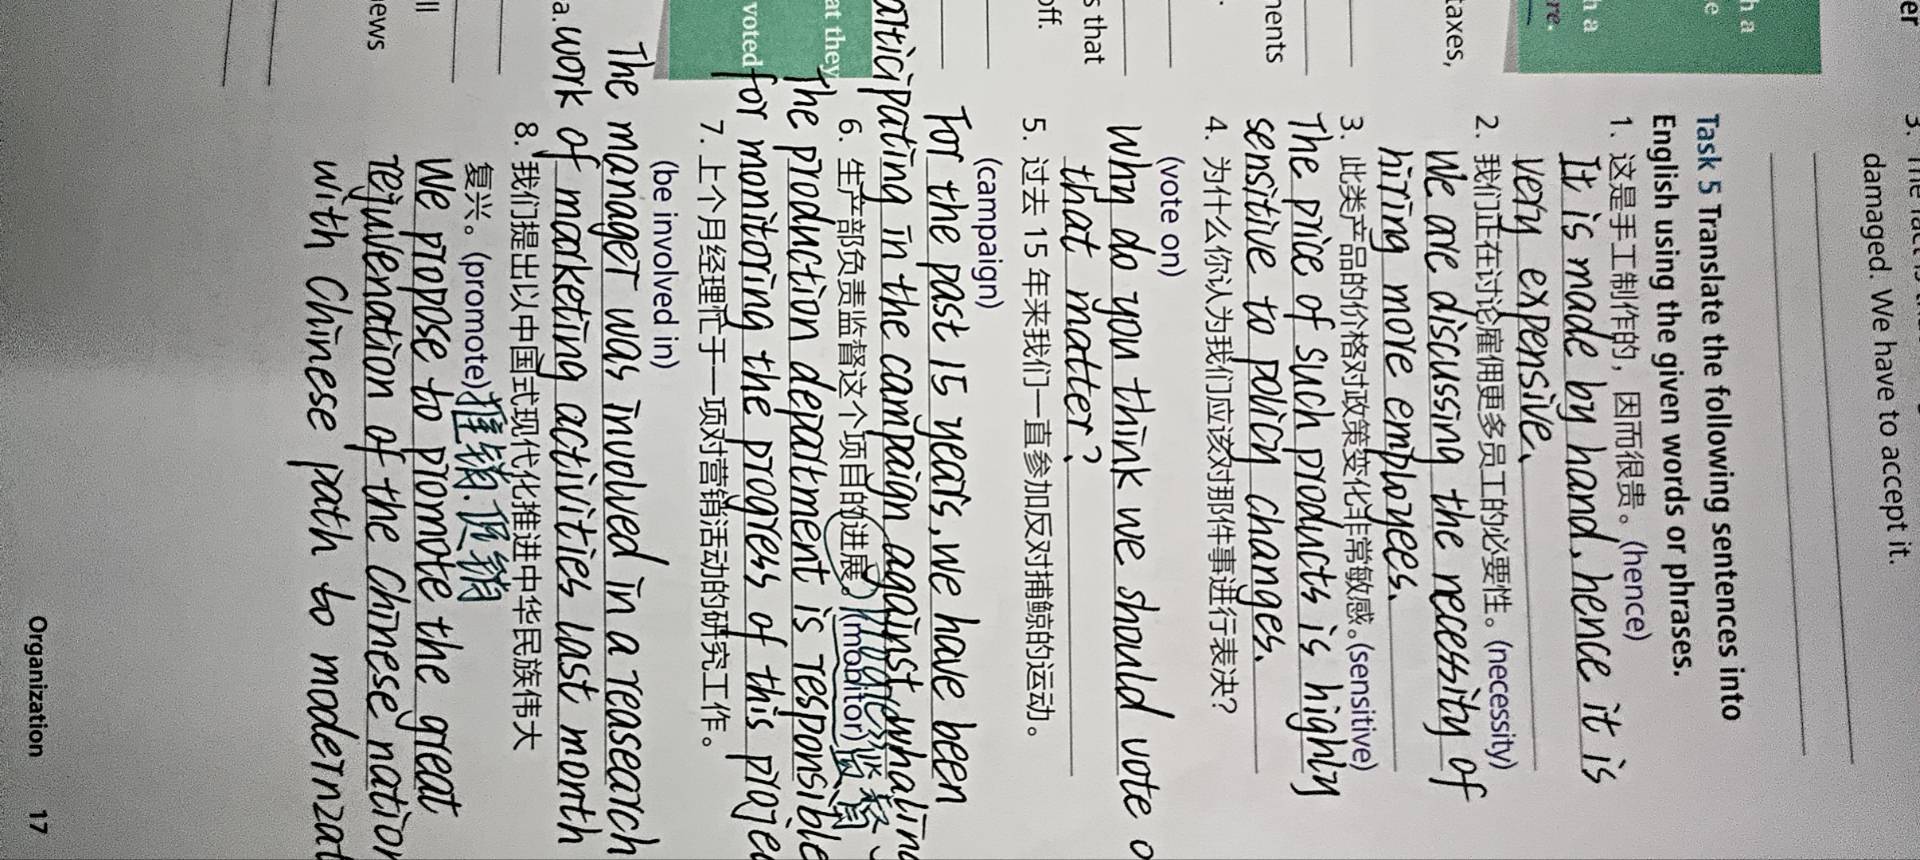 er
3.
damaged. We have to accept it.
h a
e
h a
re.
taxes,
nents
s that
off.
at they
voted
a.
ll
ews
Task 5 Translate the following sentences into
English using the given words or phrases.
1. 这是手工制作的，因而很贵。(hence)
It is made by hand, hence it is
very expensive.
2. 我们正在讨论雇佣更多员工的必要性。(necessity)
We are discussing the necessity of
hiring more employees.
3. 此类产品的价格对政策变化非常敏感。(sensitive)
The price of such products is highly
sensitive to policy changes.
4. 为什么你认为我们应该对那件事进行表决？
(vote on)
Why do you think we should vote o
that matter?
5. 过去 15 年来我们一直参加反对捕鲸的运动。
(campaign)
For the past 15 years, we have been
articipating in the campaign against whaling
6. 生产部负责监督这个项目的进展。(monitor)
The production department is responsible
for monitoring the progress of this projec
7. 上个月经理忙于一项对营销活动的研究工作。
(be involved in)
The manager was involved in a reasearch
work of marketing activities last month
8. 我们提出以中国式现代化推进中华民族伟大
复兴。(promote) 推销. 促销
We propose to promote the great
rejuvenation of the Chinese nation
with Chinese path to modernizat
Organization 17